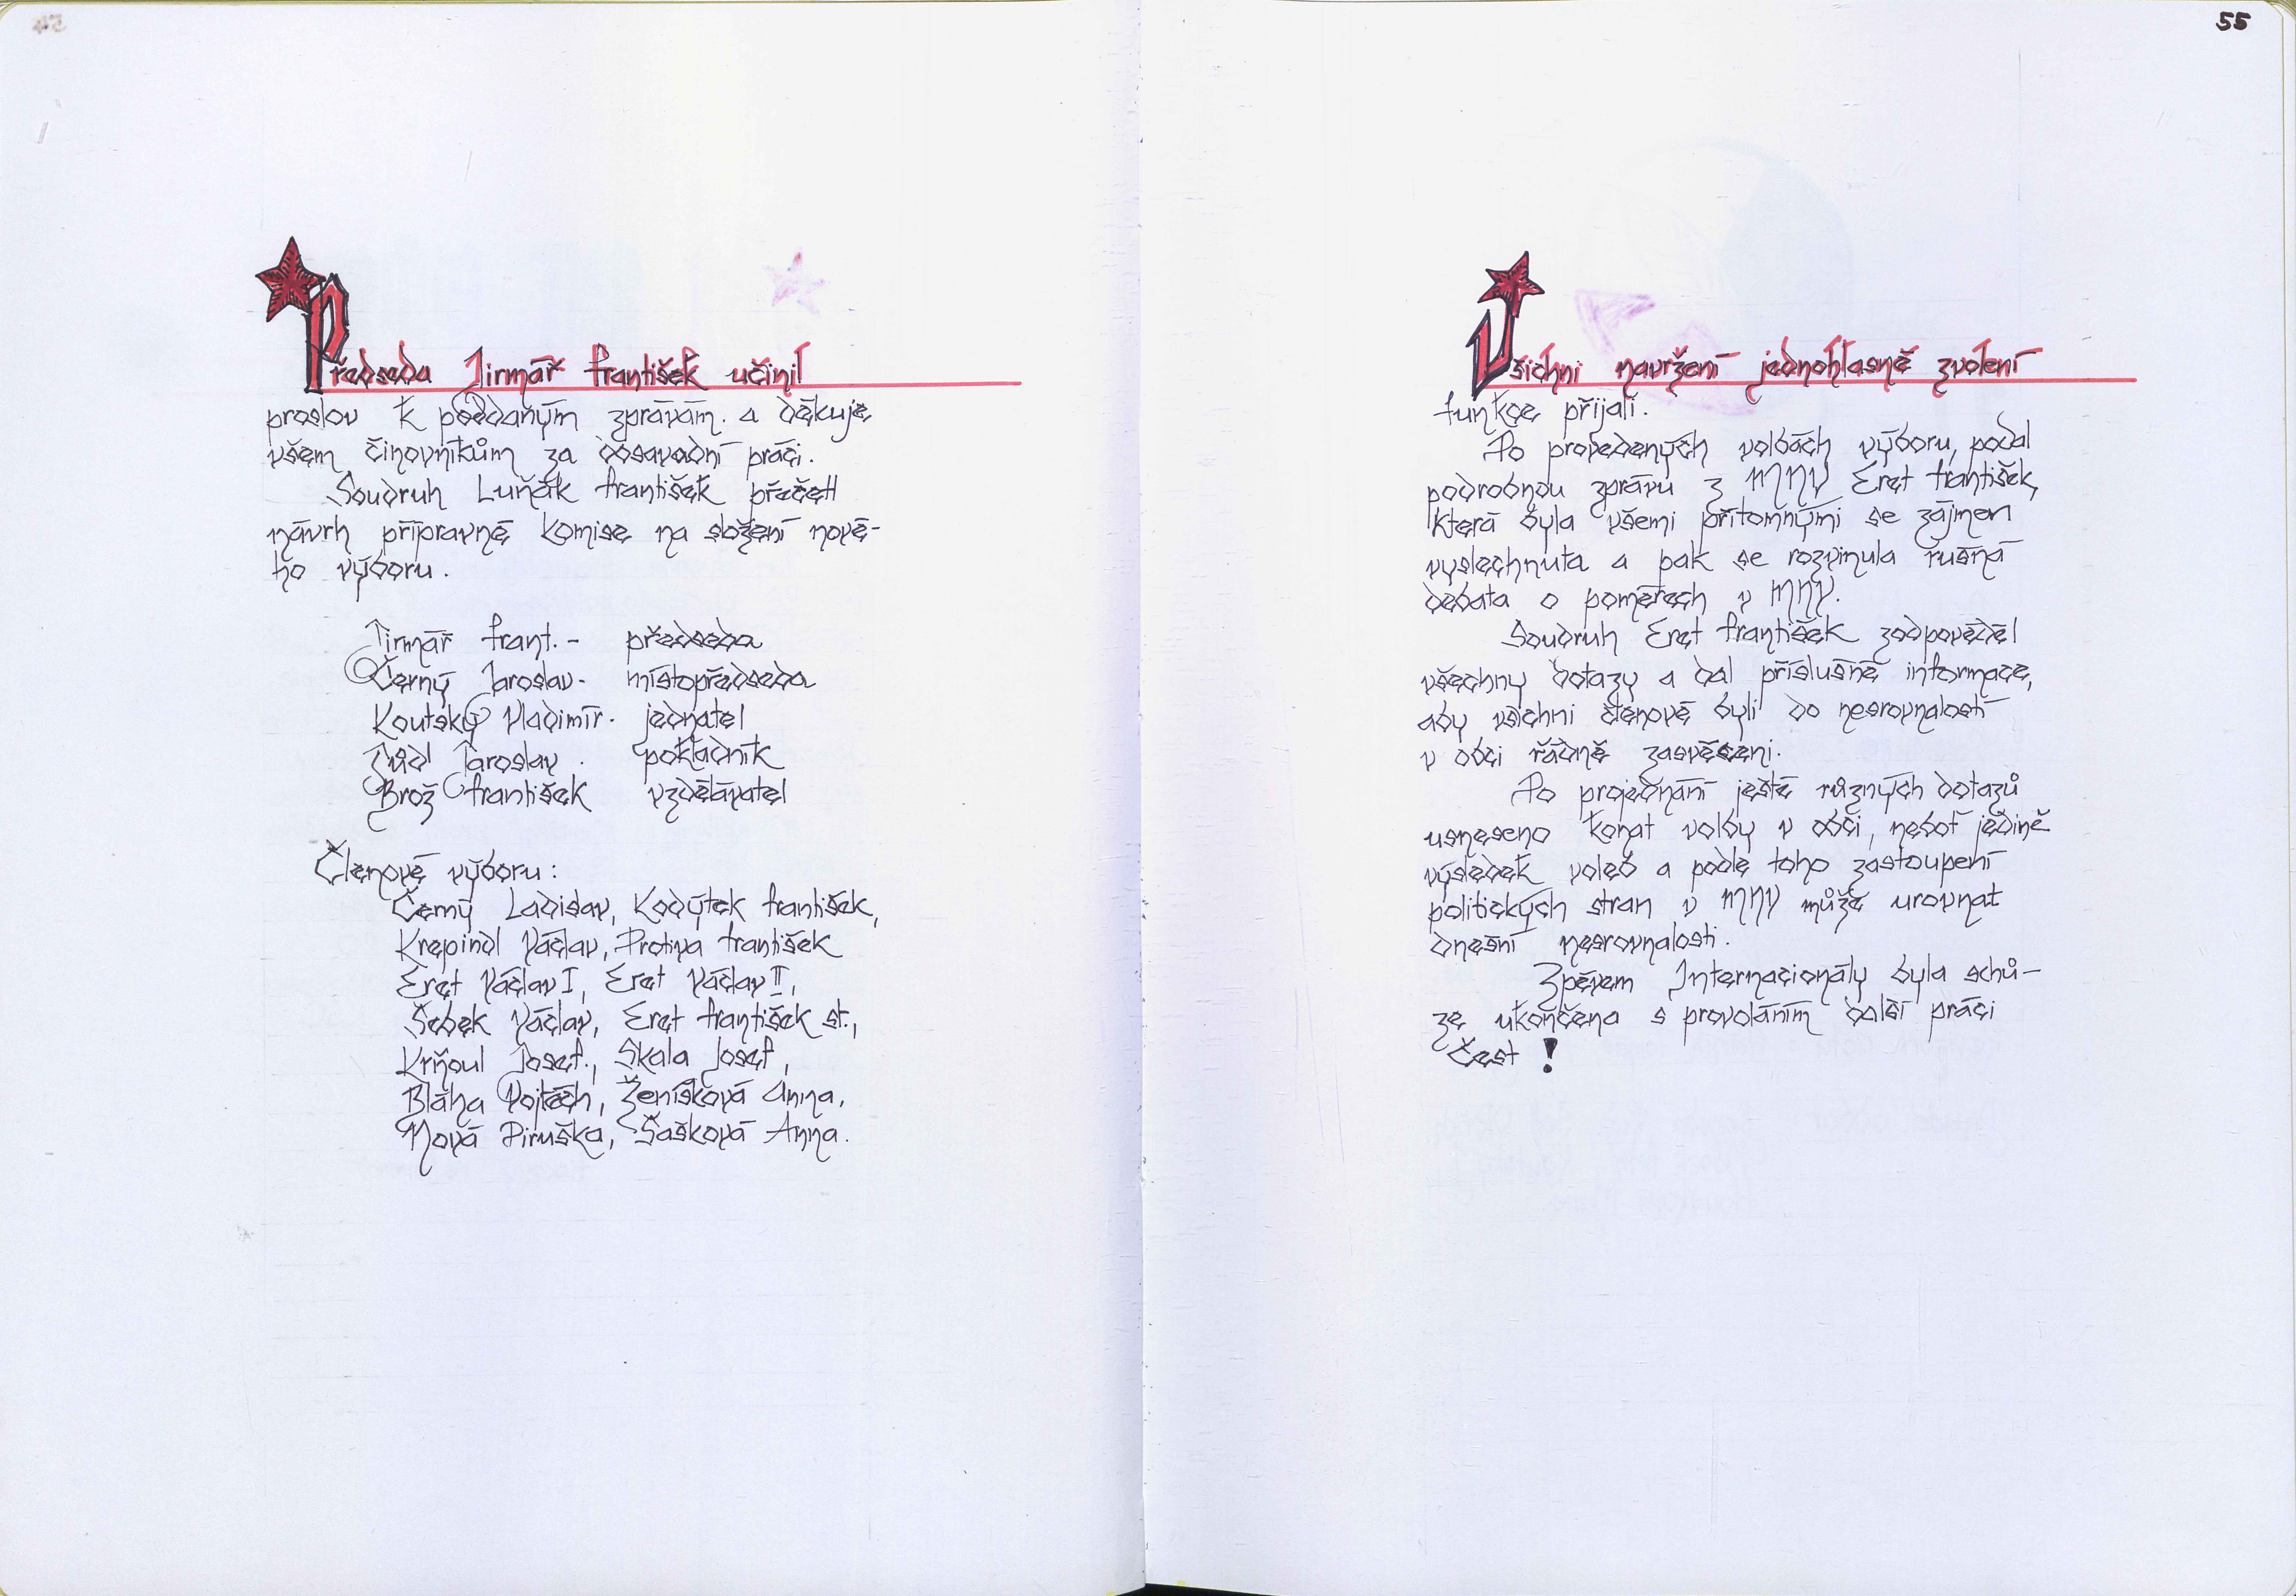 Předseda Jirmář František učinil
proslov k podaným zprávám. a děkuje
všem činovníkům za dosavadní práci.
Soudruh Luňák František přečetl
návrh přípravné komise na složení nové-
ho výboru.
Jirmář Frant. - předseda
Černý Jaroslav - místopředseda
Koutský Vladimír - jednatel
Jaroslav. pokladník
Brož František vzdělávatel
Členové výboru:
Černý Ladislav, Kodýtek František,
Krepindl Václav, Protiva František
Eret Václav I, Eret Václav II,
Šebek Václav, Eret František st.,
Krňoul Josef., Skala Josef,
Bláha Vojtěch, Ženíšková Anna,
Nová Piruška, Šašková Anna.
55
Všichni navržení jednohlasně zvolení
funkce přijali.
Po provedených volbách výboru, podal
podrobnou zprávu z MNV Eret František,
která byla všemi přítomnými se zájmem
vyslechnuta a pak se rozvinula rušná
debata o poměrech v MNV.
Soudruh Eret František zodpověděl
všechny dotazy a dal příslušné informace,
aby všichni členové byli do nesrovnalostí
v obci řádně zasvěceni.
Po projednání ještě různých dotazů
usneseno konat volby v obci, neboť jedině
výsledek voleb a podle toho zastoupení
politických stran v MNV může urovnat
dnešní nesrovnalosti.
Zpěvem Internacionály byla schů-
ze ukončena s provoláním další práci
Čest !